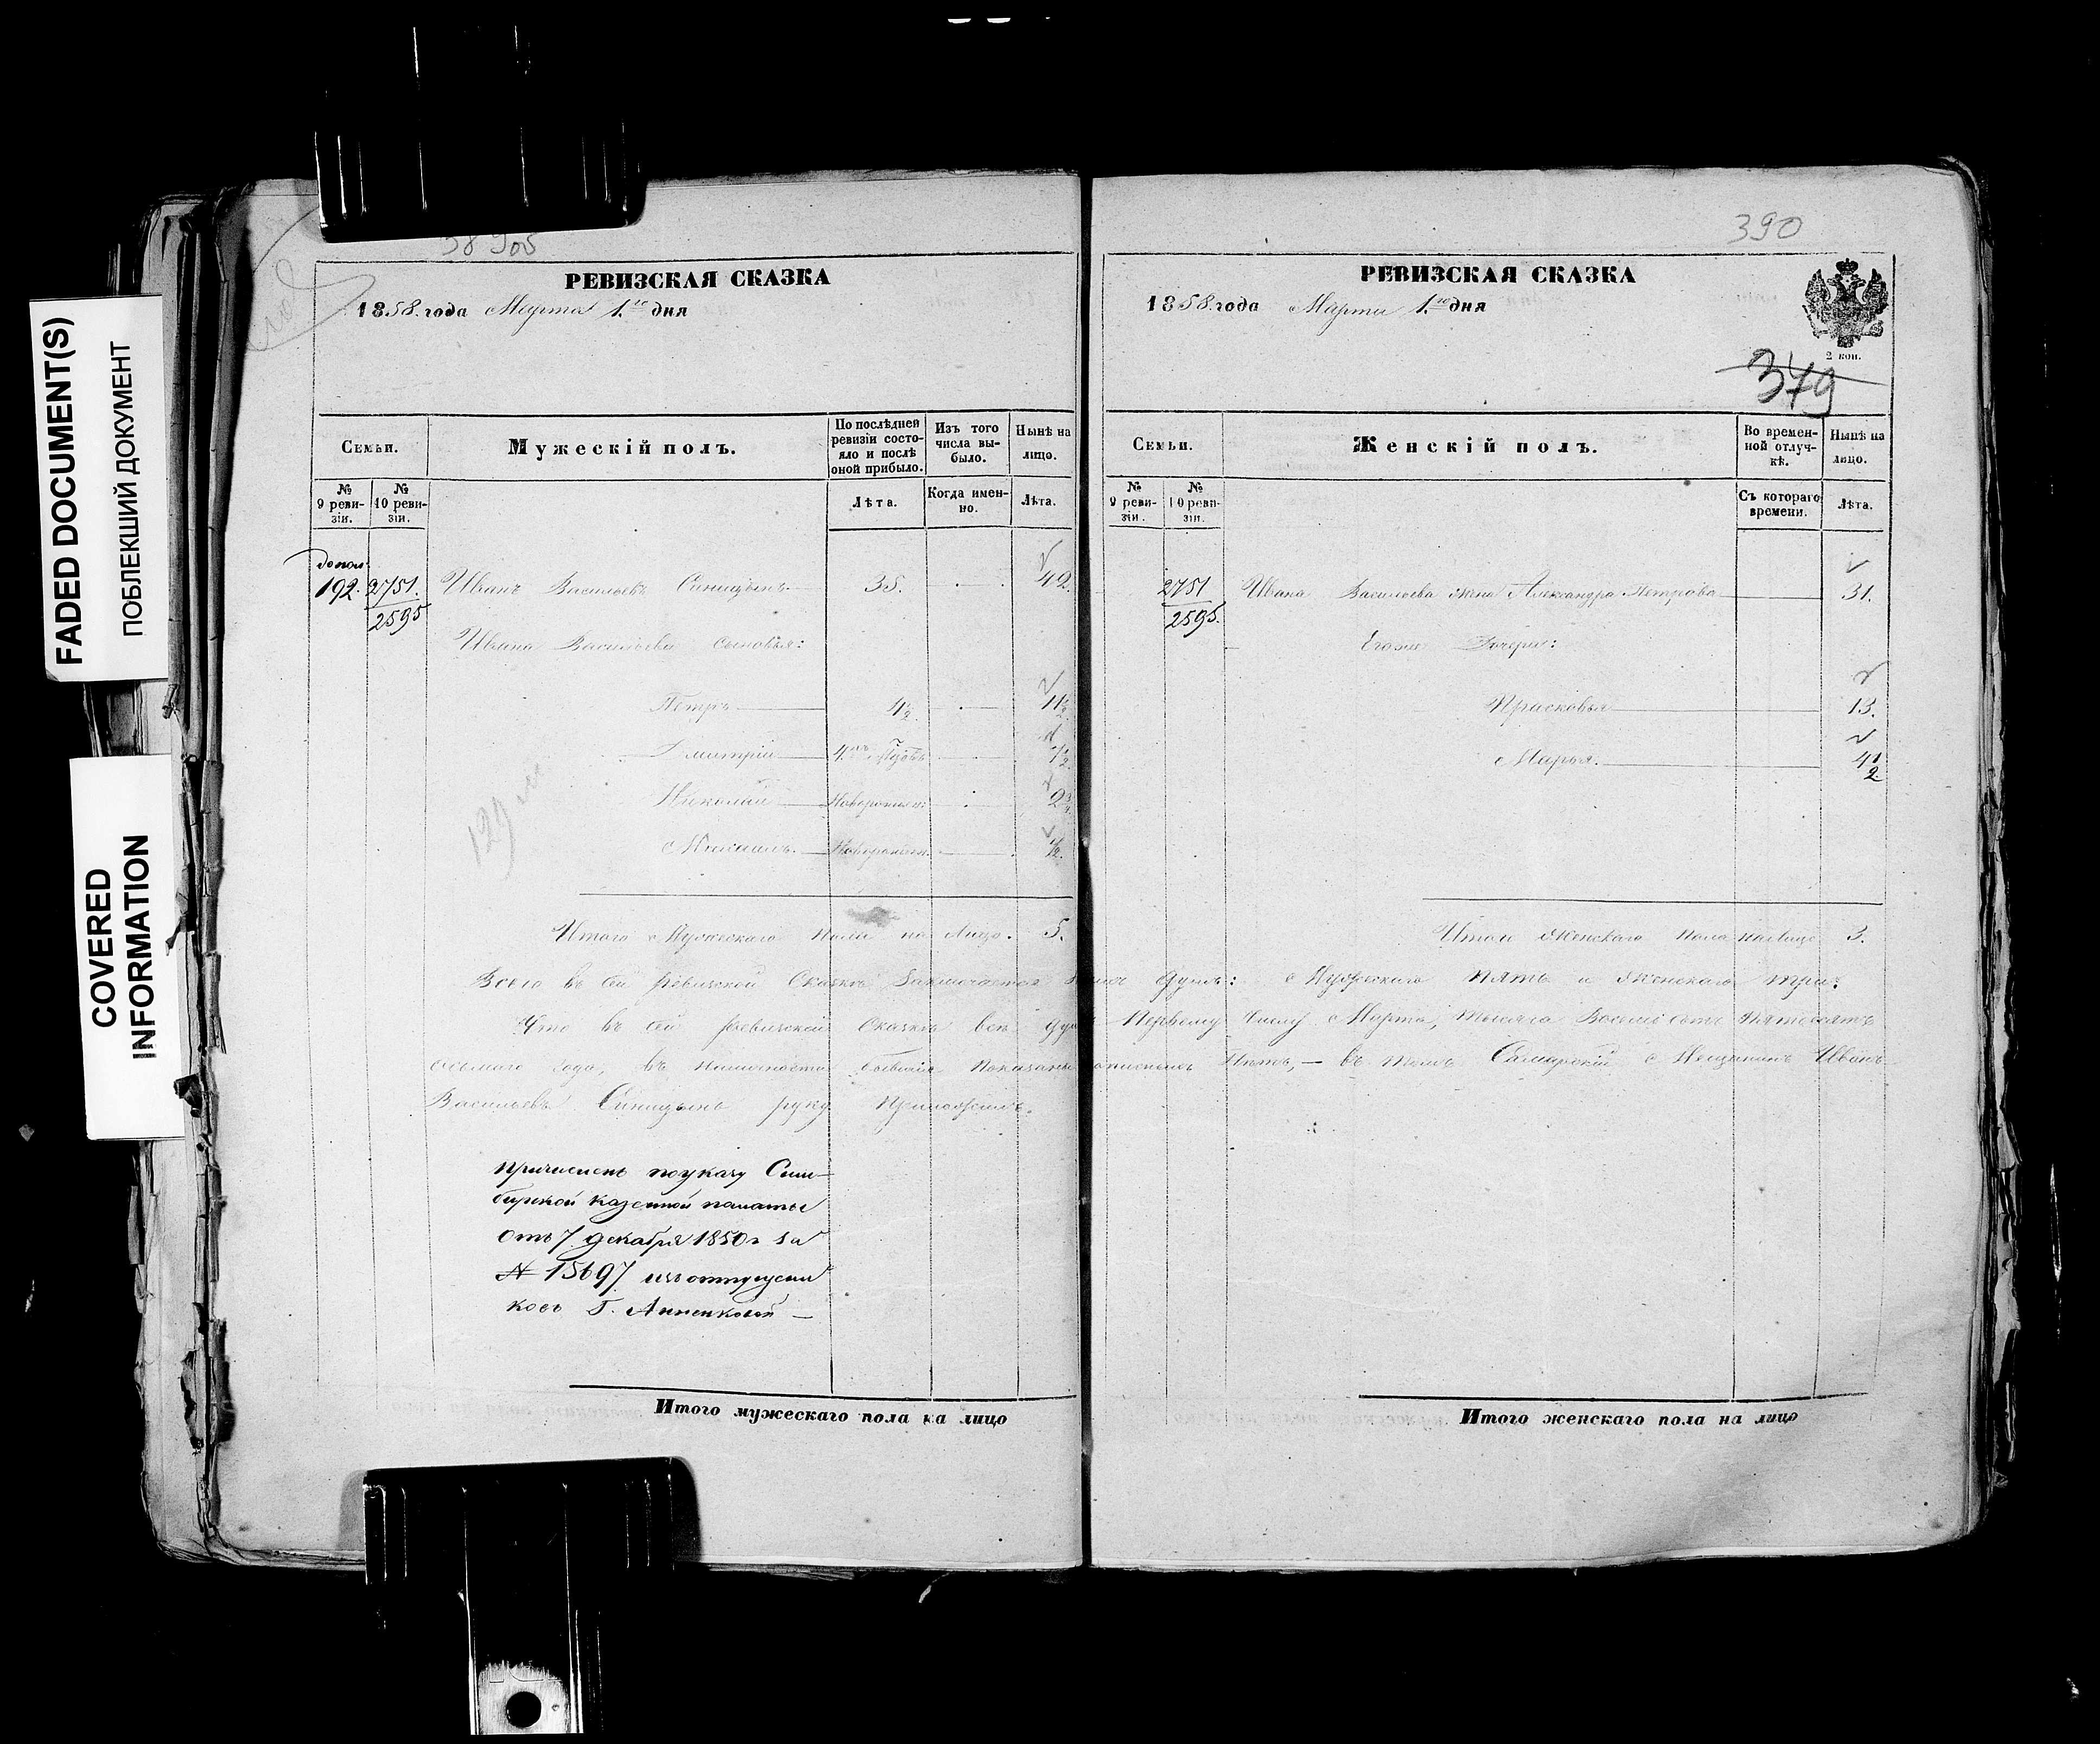 FADED DOCUMENT(S)
ПОБЛЕКШИЙ ДОКУМЕНТ
COVERED
INFORMATION
РЕВИЗСКАЯ СКАЗКА
1858. года Марта 1го дня
Семьи.
Мужескій полъ.
По послѣдней
ревизіи состо-
яло и послѣ
оной прибыло.
Изъ того
числа вы-
было.
Нынѣ на
лицо.
№
9 реви-
зіи.
№
10 реви-
зіи.
Лѣта.
Когда имен-
но.
Лѣта.
допол:
192. 2751. Иванъ Васильевъ Синицынъ 35. 42
2595
Ивана Васильева сыновья:
Петръ 4½ 11½
Дмитрій 7½
Николай Новорожден: 2¾
Михаилъ. Новорожден. ½.
129
Итого Мужескаго пола на лицо. 5.
390
РЕВИЗСКАЯ СКАЗКА
1858. года Марта 1го дня
2 коп.
379
Семьи.
Женскій полъ.
Во времен-
ной отлуч-
кѣ.
Нынѣ на
лицо.
№
9 реви-
зіи.
№
10 реви-
зіи.
Съ котораго
времени.
Лѣта.
2751 Ивана Васильева жена Александра Петрова 31.
2595.
Егоже Дочери:
Прасковья 13.
Марья. 4½
Итого Женскаго пола на лицо 3.
Всего въ сей ревизской Сказкѣ Заключается душъ: Мужескаго пять и Женскаго три:
Что въ сей ревизской Сказкѣ все Первому числу Марта, тысяча Восемь сотъ пятьдесятъ
осьмаго года, въ наличности бывшія показаны Нѣтъ, — въ томъ Самарскій Мещанинъ Иванъ
Васильевъ Синицынъ руку приложилъ.
Причисленъ по указу Сим-
бирской Казенной палаты
отъ 7 декабря 1850 г за
№ 15697 изъ отпущени
ковъ Г. Анненковой —
Итого мужескаго пола на лицо
Итого женскаго пола на лицо